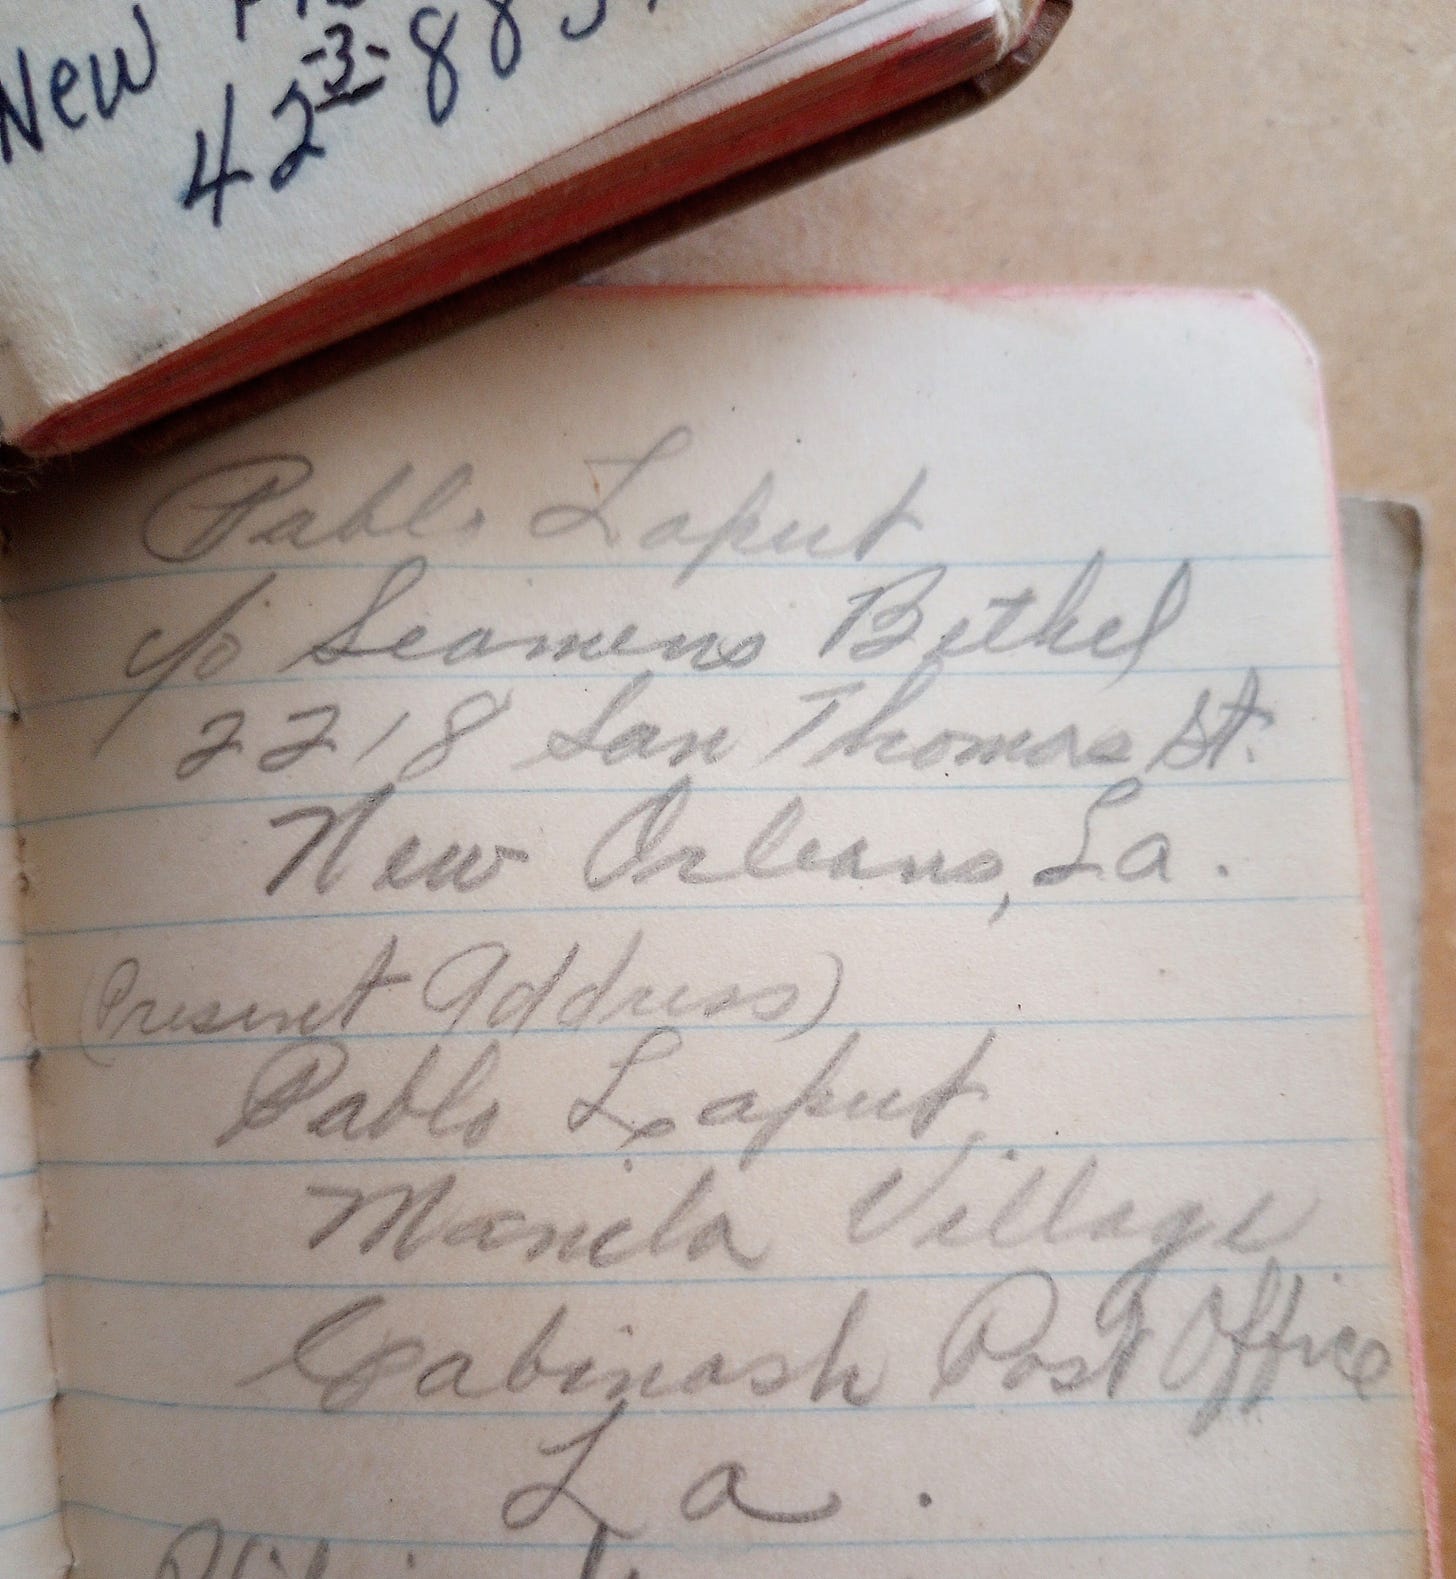 New
42-3-88
Pablo Laput
c/o Seamens Bethel
2218 San Thomas St.
New Orleans, La.
(Present Address)
Pablo Laput
Manila Village
Cabinash Post Office
La.